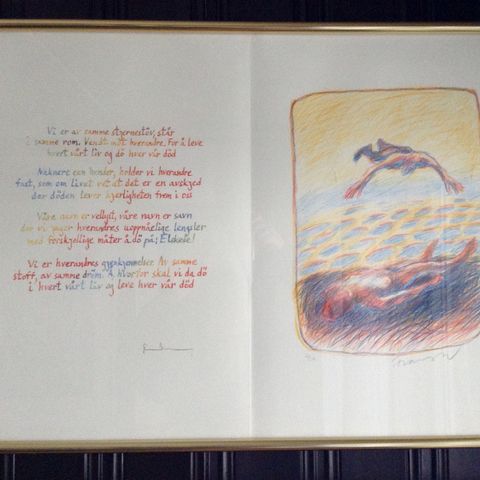 Vi er av samme stjernestöv, står
i samme rom. Vendt mot hverandre. For å leve
hvert vårt liv og dö hver vår död
Naknere enn hender, holder vi hverandre
fast, som om livet vet at det er en avskjed
der döden lever kjærligheten frem i oss
Våre navn er vellyst, våre navn er savn
der vi jager hverandres uoppnåelige lengsler
med forskjellige måter å dö på; Elskede!
Vi er hverandres gjenkjennelse. Av samme
stoff, av samme dröm. Å, hvorfor skal vi da dö
i hvert vårt liv og leve hver vår död